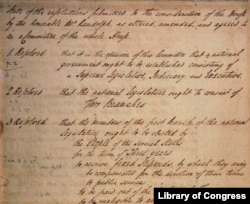 State of the resolutions submitted to the consideration of the House
by the honorable Mr. Randolph, as altered, amended, and agreed to
in a Committee of the whole House.
1. Resolved that it is the opinion of this Committee that a national
government ought to be established consisting of
a Supreme Legislative, Judiciary, and Executive.
2. Resolved that the national Legislature ought to consist of
Two Branches
3. Resolved that the members of the first branch of the national
Legislature ought to be elected by
the People of the several States
for the term of Three years
to receive fixed stipends, by which they may
be compensated for the devotion of their time
to public service
to be paid out of the
Library of Congress